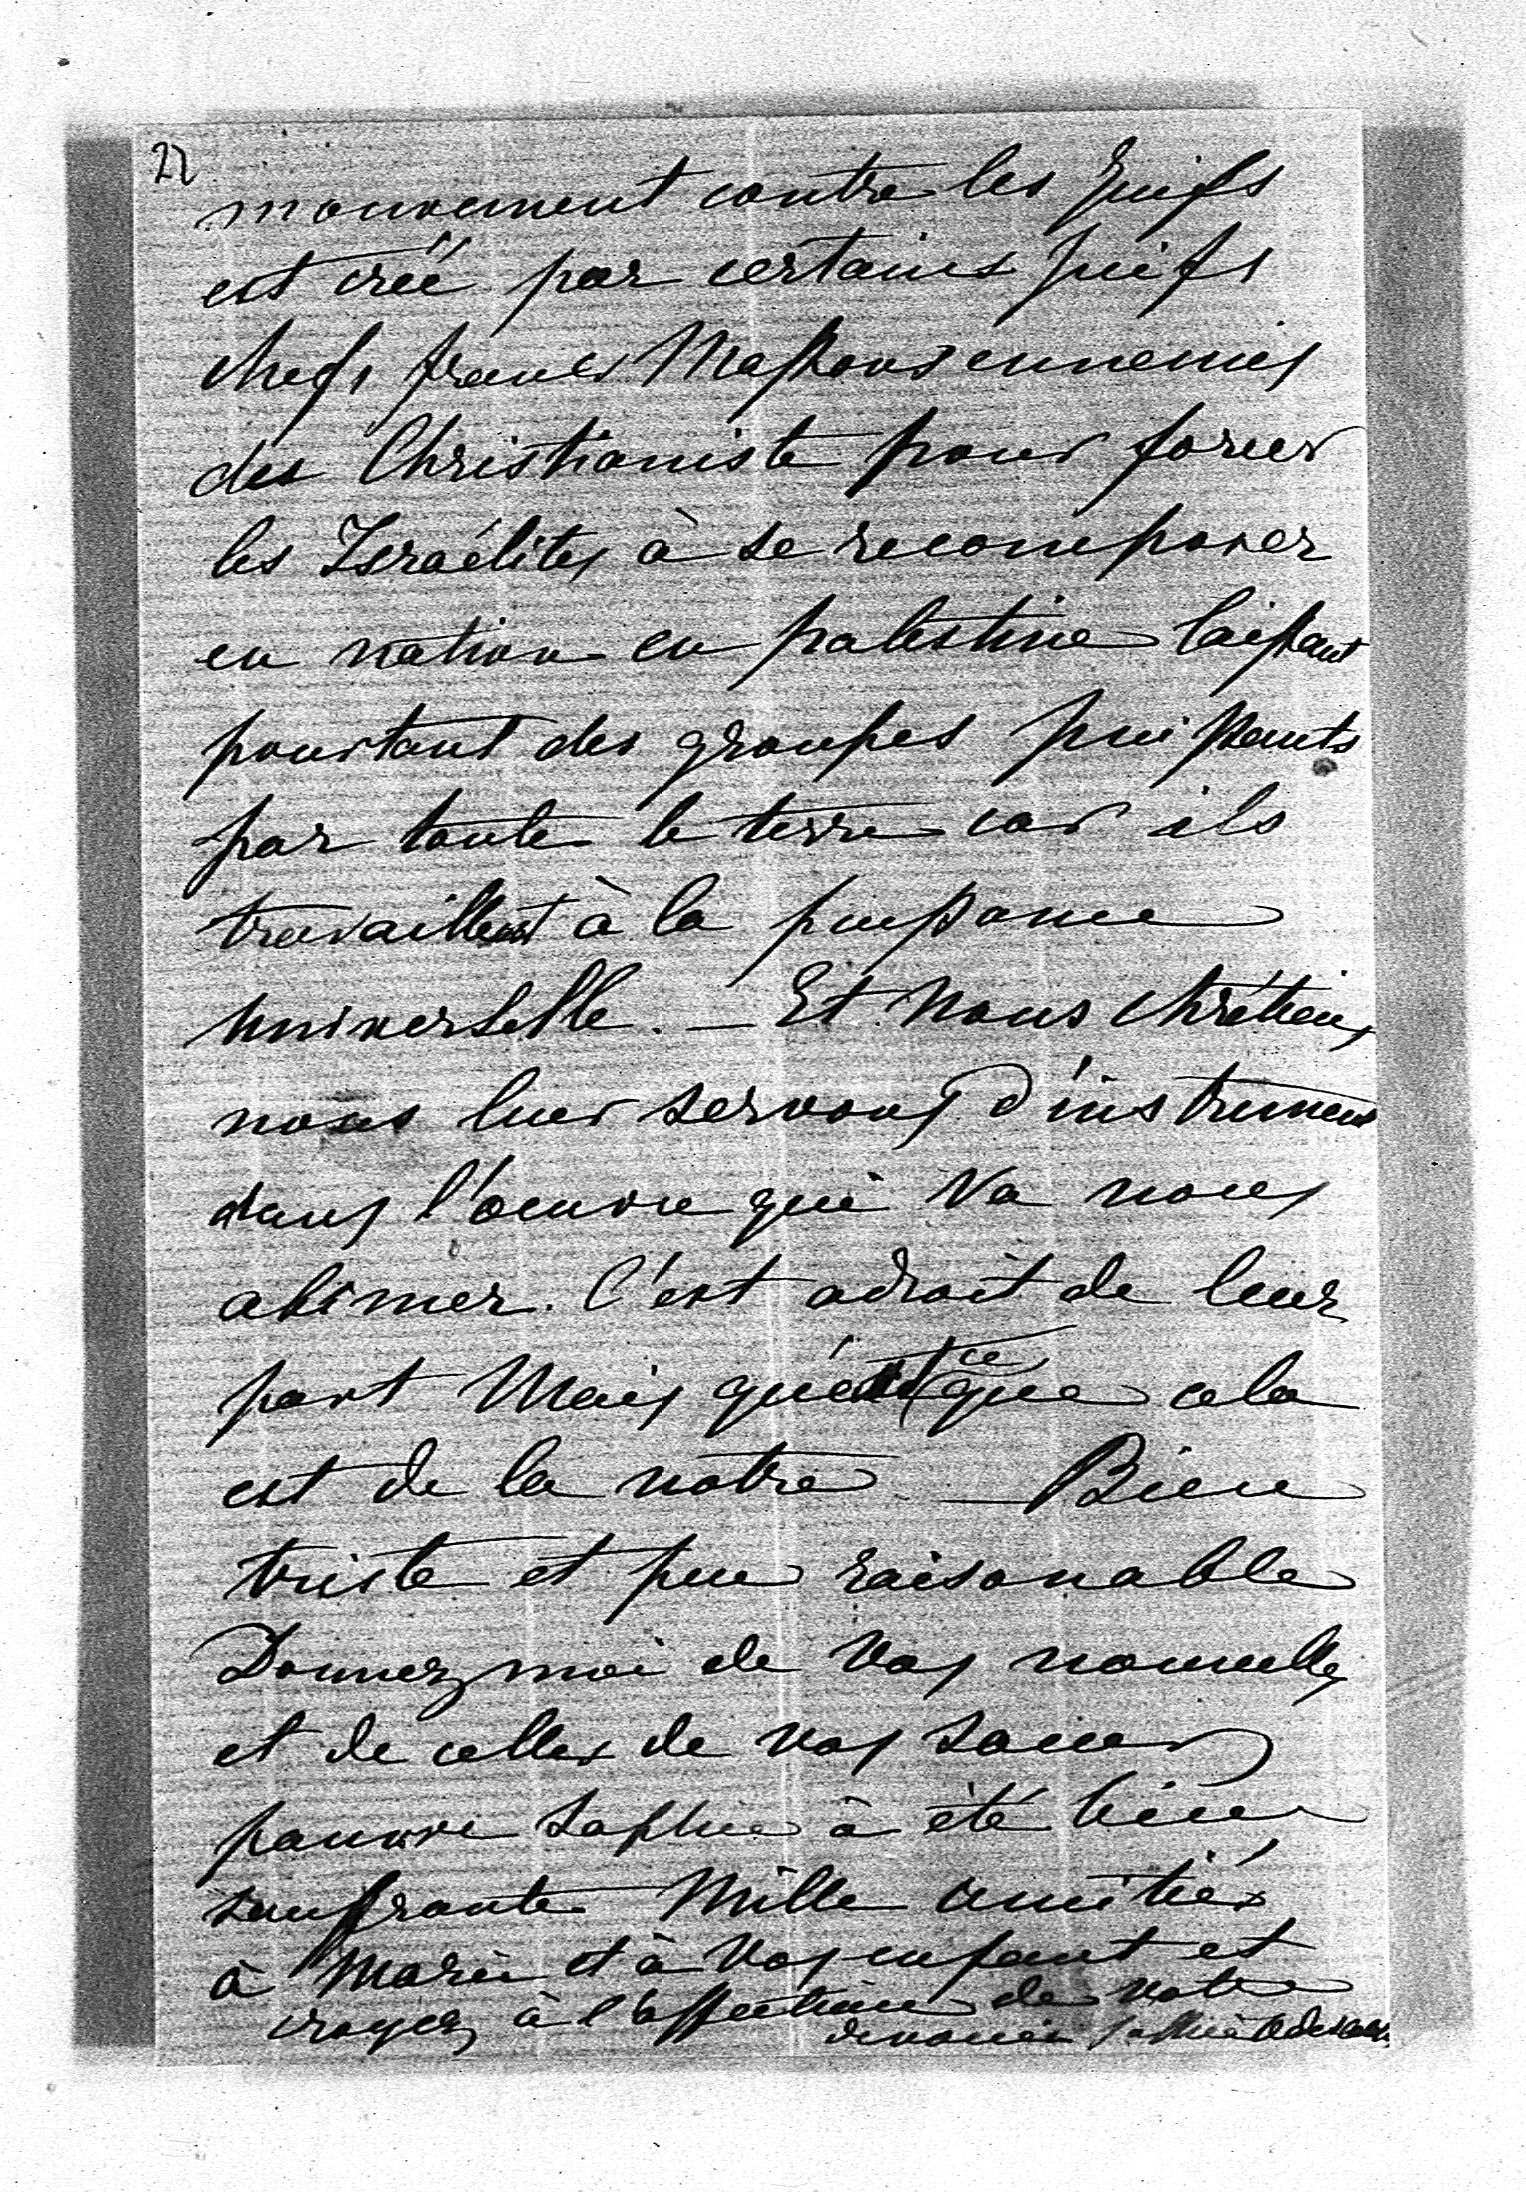 22
mouvement contre les Juifs
est créé par certains Juifs
chefs francs Massons ennemis
des Christianiste pour forcer
les Israélites à se recomposer
en nation en palestine laissant
pourtant des groupes puissants
par toute la terre car ils
travaillent à la puissance
Universelle. — Et Nous Chrétiens
nous leur servons d'instrument
dans l'oeuvre qui va nous
abimer. C'est adroit de leur
part Mais qu'est ce que cela
est de la notre — Bien
triste et peu raisonable
Donnez moi de vos nouvelles
et de celles de vos soeurs
pauvre Sophie à été bien
souffrante Mille amitiés
à Marie et à Vos enfant et
croyez à l'affection de votre
devouée